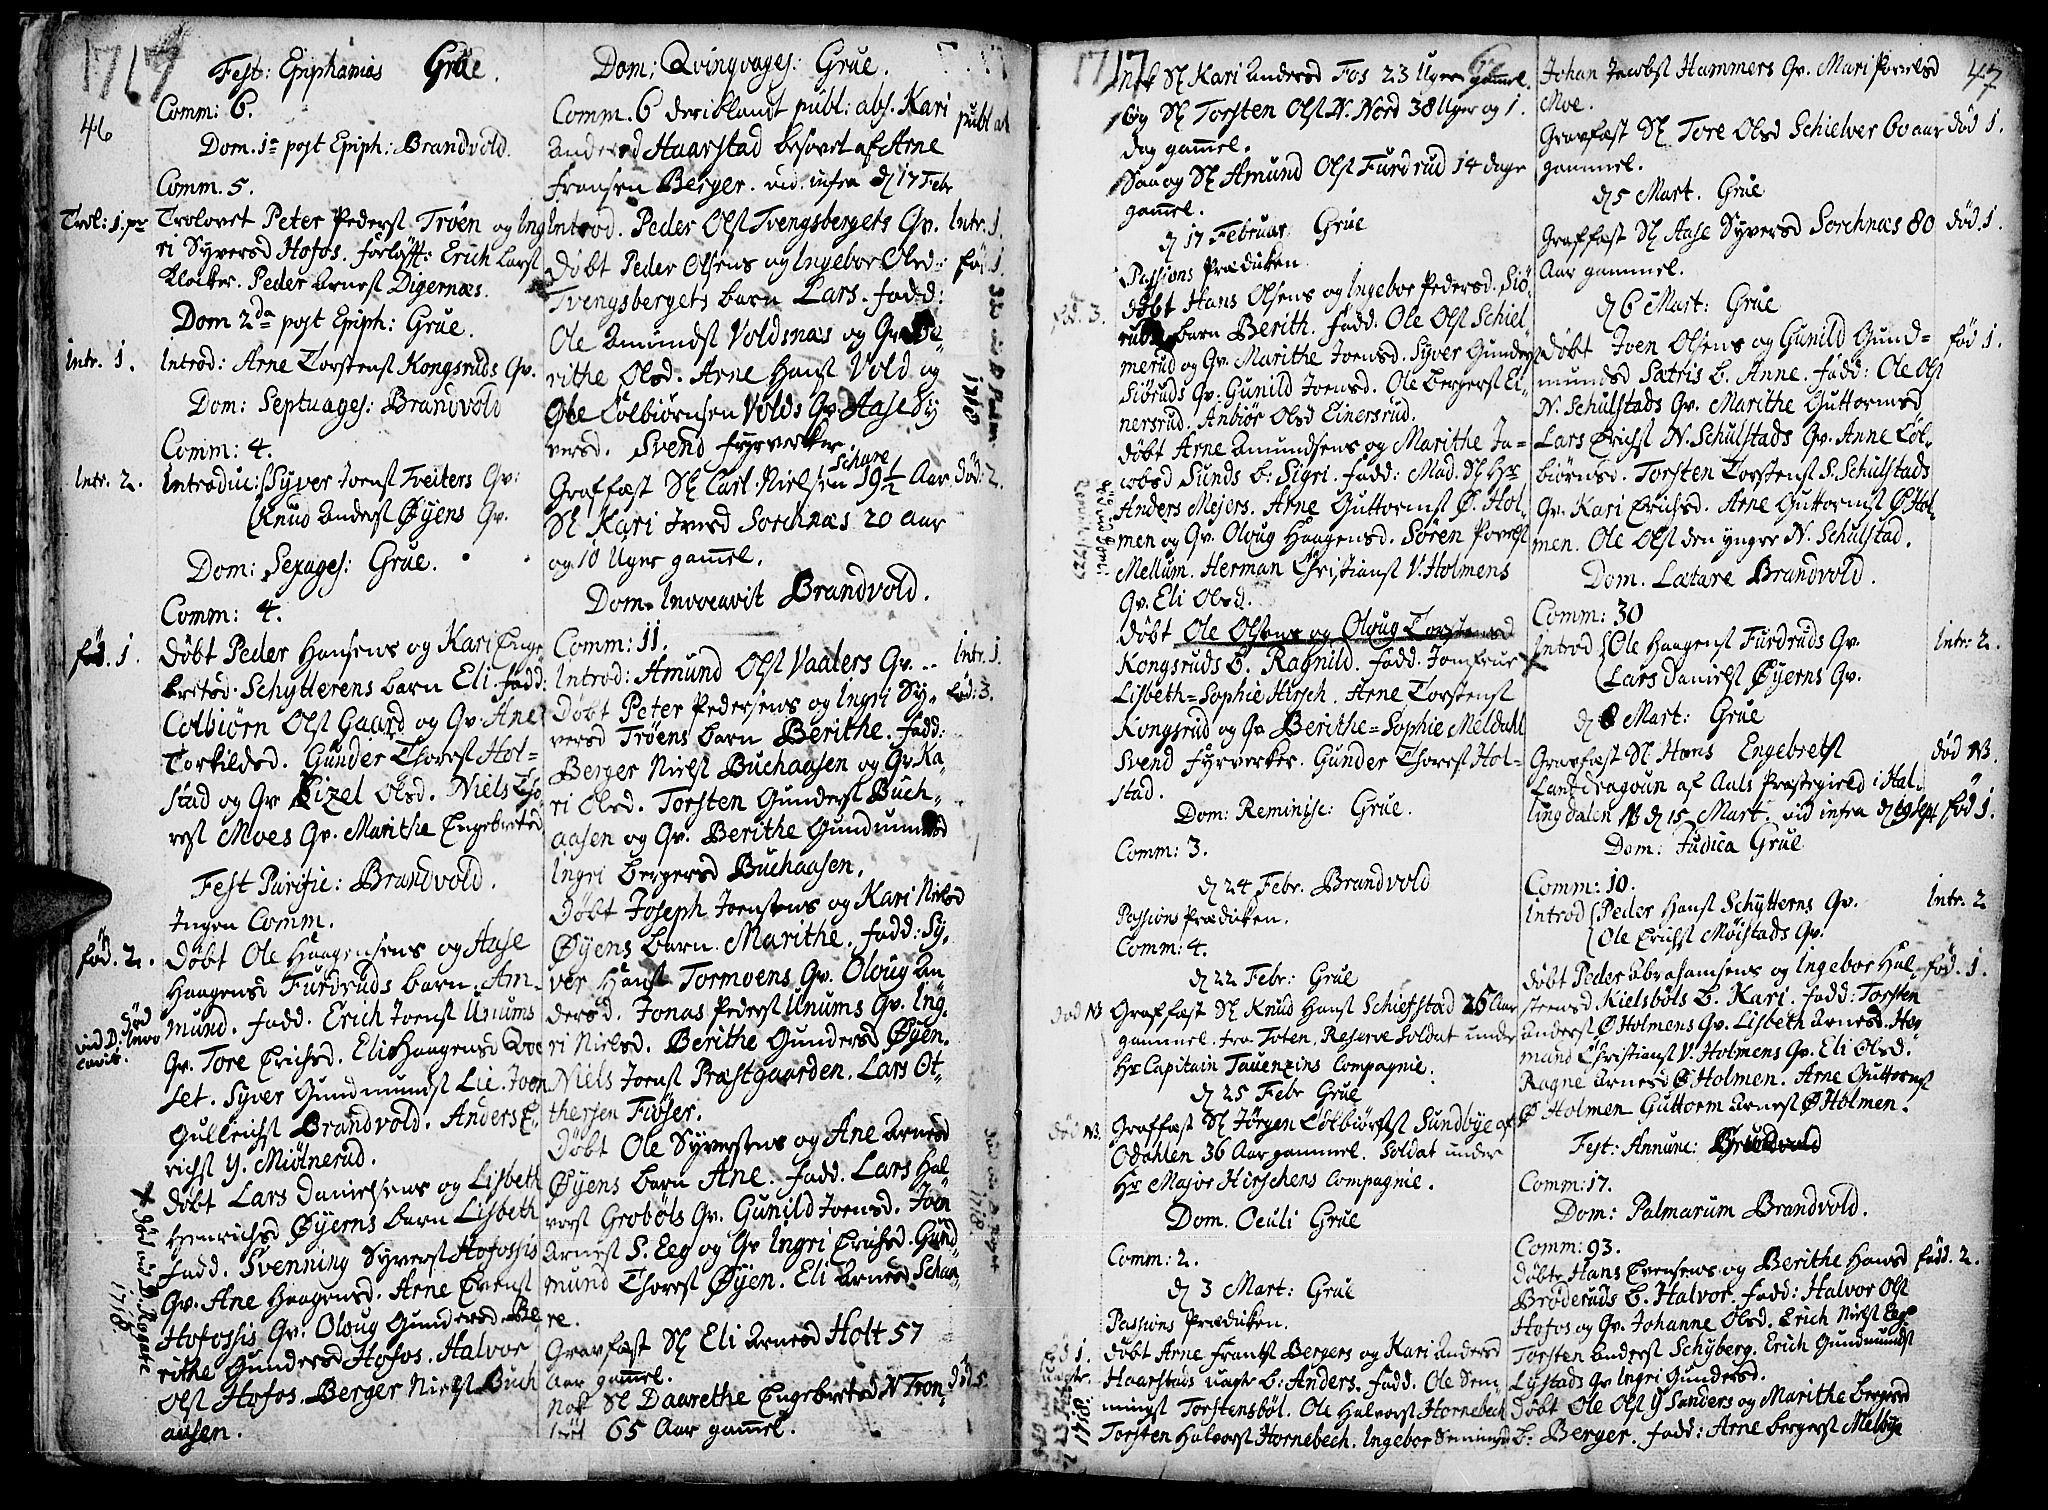 1717
46
Fest: Epiphanias Grue.
Comm: 6.
Dom. 1ª post Epiph: Brandvold.
Comm. 5.
Trol: 1. pr
Trolovet Peter Peders Trøen og Ing
ri Syversd Hofos. forløfft: Erich Lars
Klocker. Peder Arnes Digernæs.
Dom 2da post Epiph: Grue.
Intr. 1.
Introd: Arne Torstens Kongsruds Qv.
Dom: Septuages: Brandvold
Comm: 4.
Intr. 2.
Introduc: Syver Joens Tveiters Qv:
Knud Anders Øyens Qv.
Dom: Sexages: Grue.
Comm: 4.
fød. 1.
Døbt Peder Hansens og Kari Enge
bretsd Schytterens barn Eli. fadd:
Colbiørn Ols Gaard og Qv Ane
Torkildsd. Gunder Thores Hol=
stad og Qv Kizel Olsd. Niels Tho
res Moes Qv. Marithe Engebretsd
Fest Purific: Brandvold.
Ingen Comm.
fød. 2.
Døbt Ole Haagensens og Aase
Haagensd Furdruds barn Am-
mund. fadd. Erich Joens Unums
Qv. Tore Erichsd. Eli Haagensd
set. Syver Gundmunds Lie. Joen
Gulleichs Brandvold. Anders E-
richs Y. Miølnerud.
død
vid D: Invo
cavit.
Døbt Lars Danielsens og Lisbeth
Henrichsd Øyerns barn Lisbeth
fadd. Svenning Syvers Hofossis
Qv. Ane Haagensd. Arne Evens
Hofossis Qv. Oloug Gundersd. Be
rithe Gundersd Hofos. Halvor
Ols Hofos. Berger Niels Buch
aasen.
død vid D. Rogate
1718.
Dom: Qvinqvages: Grue.
Comm. 6 deriblandt publ: abs. Kari
publ ab
Andersd Haarstad besovet af Arne
fransen Berger. vid. infra d 17 Febr
Introd. Peder Ols Tvengsbergets Qv.
Intr. 1.
Døbt Peder Olsens og Ingebor Olsd:
fød 1.
Tvengsbergets barn Lars. fadd:
Ole Amunds Voldsnæs og Qv Be
rithe Olsd. Arne Hans Vold og
Ole Colbiørnsen Volds Qv Aase Sy
versd. Svend fyrverker.
1718
Graffæst Sl Carl Nielsen Schare 19½ Aar
død: 2.
Sl Kari Iversd Sorchnæs 20 Aar
og 10 Uger gamel.
Dom. Invocavit Brandvold.
Comm: 11.
Introd: Amund Ols Vaalers Qv.
Intr. 1.
Døbt Peter Pedersens og Ingri Sy-
fød: 3.
versd Trøens barn Berithe. fadd:
Berger Niels Buchaasen og Qv Ka-
ri Olsd. Torsten Gunders Buch-
aasen og Qv. Berithe Gundmundsd
Ingri Bergersd Buchaasen.
Døbt Joseph Joensens og Kari Nielsd
Øyens barn Marithe. fadd: Sy-
ver Hans Tormoens Qv. Oloug An
dersd. Jonas Peders Unums Qv. Ing-
ri Nielsd. Berithe Gundersd Øyen.
Niels Joens Præstgaarden. Lars Ot-
thersen Fiøser.
Døbt Ole Syversens og Ane Arnesd
Øyens barn Ane. fadd. Lars Hal
vors Grobøls Qv. Gunild Joensd. Joen
Arnes S. Eeg og Qv Ingri Erichsd. Gund-
mund Thores Øyen. Eli Arnesd Scha-
re.
1718.
Gravfæst Sl Eli Arnesd Holt 57
Aar gamel.
Nok Sl Daarethe Engebretsd N Tron-
død 5.
65 Aar gamel.
1717
47
Nok Sl Kari Andersd Fos 23 Uger gamel.
Og Sl Torsten Ols N. Nord 38 Uger og 1.
Dag gamel.
Saa og Sl Amund Ols Furdrud 14 dage
gamel.
d 17 Februar Grue
Passions Prædicken.
fød. 3.
Døbt Hans Olsens og Ingebor Pedersd. Siø
ruds barn Berith. fadd. Ole Ols Schiel-
merud og Qv. Marithe Joensd. Syver Gunders
Siøruds Qv. Gunild Joensd. Ole Bergers Ei-
nersrud. Anbiør Olsd Einersrud.
Døbt Arne Amundsens og Marithe Ja-
cobsd Sunds b. Sigri. fadd: Mad. Sl Hr
Anders Mejers. Arne Guttorms Ø. Hol-
men og Qv. Oloug Haagensd. Søren Povels
Mellum. Herman Christians V. Holmens
Qv. Eli Olsd.
Døbt Ole Olsens og Oloug Torstensd
Kongsruds b. Ragnild. fadd. Jomfrue
Lisbeth=Sophie Hirsch. Arne Torstens
Kongsrud og Qv Berithe=Sophie Meldahl
Svend fyrverker. Gunder Thores Hol-
stad.
Dom: Reminisc: Grue.
Comm: 3.
d 24 Febr. Brandvold
Passions Prædicken.
Comm: 4.
d 22 Febr: Grue
død NB
Graffæst Sl Knud Hans Schiefstad 26 Aar
gammel. fra Toten, Reserve Soldat under
Hr Capitain Tauenzins Compagnie.
d 25 Febr Grue
død NB.
Graffæst Sl Jørgen Colbiørs Sundbye af
Odahlen 36 Aar gammel. Soldat under
Hr Major Hirschens Compagnie.
Dom. Oculi Grue
Comm: 2.
d 3 Mart: Grue
Passions Prædicken.
fød 1.
Døbt Arne frants Bergers og Kari Andersd
Haarstads uægte b: Anders. fadd. Ole Sem
mings Torstensbøl. Ole Halvors Hornebech
Torsten Halvors Hornebech. Ingebor Semmingsd
1718.
Johan Jacobs Hammers Qv. Mari Povelsd
Moe.
Gravfæst Sl Tore Olsd Schielver 60 aar
død 1.
gammel.
d 5 Mart. Grue
Graffæst Sl Aase Syversd Sorchnæs 80
død 1.
Aar gammel.
d 6 Mart: Grue
Døbt Joen Olsens og Gunild Gund=
fød 1.
mundsd Sætris b. Anne. fadd: Ole Ols
N. Schulstads Qv. Marithe Guttormsd
Lars Erichs N. Schulstads Qv. Anne Col-
biørnsd. Torsten Torstens S. Schulstads
Qv. Kari Erichsd. Arne Guttorms Ø Hol-
men. Ole Ols den yngre N. Schulstad.
Dom. Lætare Brandvold.
Comm: 30
Introd Ole Haagens Furdruds Qv.
Intr: 2.
Lars Daniels Øyerns Qv.
d 8 Mart: Grue
Gravfæst Sl Hans Engebrets
død NB.
Landdragoun af Aals Præstegield i Hal-
lingdalen NB d 15 Mart. vid infra d 19 Sept
fød 1.
Dom: Judica Grue
Comm: 10.
Introd Peder Hans Schytterns Qv.
Intr. 2
Ole Erichs Møistads Qv.
Døbt Peder Abrahamsens og Ingebor Hal-
fød. 1.
steensd. Kielsbøls b. Kari. fadd: Torsten
Anders Ø Holmens Qv. Lisbeth Arnesd. Her
mand Christians V. Holmens Qv. Eli Olsd.
Ragne Arnesd Ø Holmen. Arne Guttorms
Ø Holmen Guttorm Arnes Ø Holmen.
Fest: Annunc:
Comm: 17.
Dom: Palmarum Brandvold.
Comm: 93.
Døbt Hans Evensens og Berithe Hansd
fødd. 2.
Brøderuds b. Halvor. fadd: Halvor Ols
Hofos og Qv. Johanne Olsd. Erich Niels Eeg
Torsten Anders Schyberg. Erich Gundmunds
Lystads Qv Ingri Gundersd.
Døbt Ole Ols Y Sanders og Marithe Bergersd
b: Berger. fadd: Arne Bergers Melbye